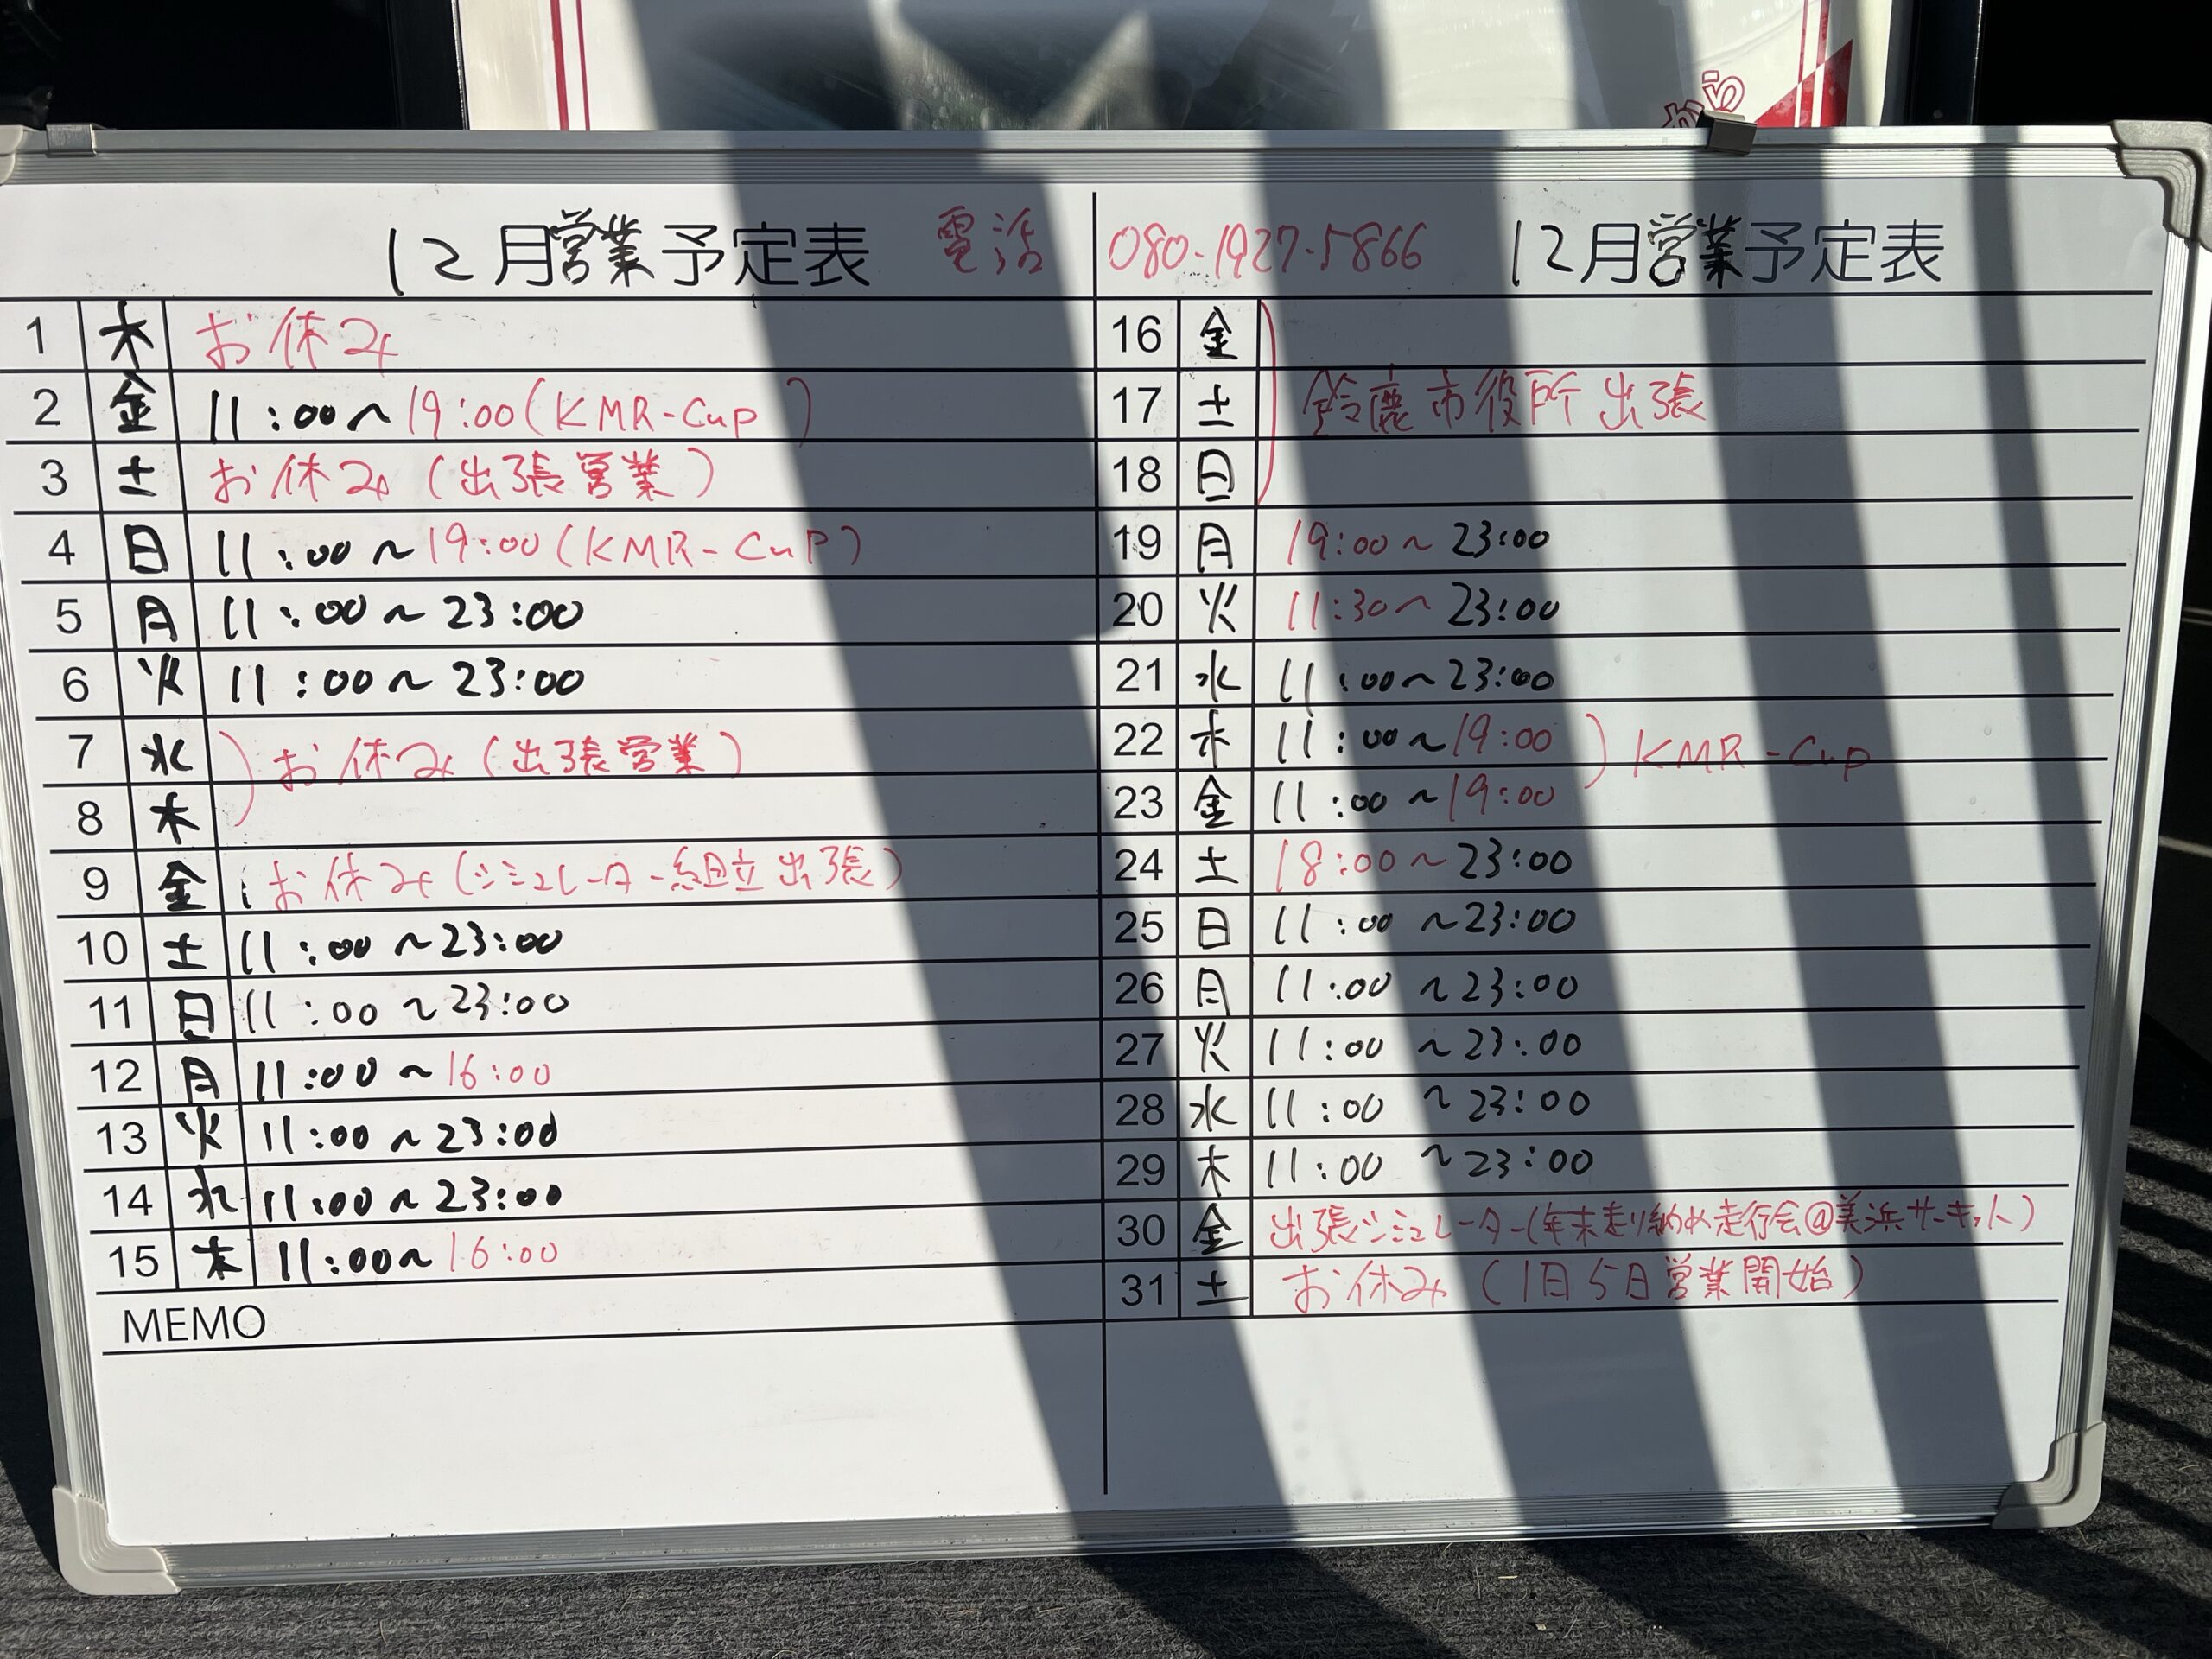 から
12月営業予定表 電話 080-1927-5866 12月営業予定表
1 木 お休み
2 金 11:00~19:00(KMR-Cup)
3 土 お休み(出張営業)
4 日 11:00~19:00(KMR-CuP)
5 月 11:00~23:00
6 火 11:00~23:00
7 水 お休み(出張営業)
8 木
9 金 お休み(シミュレーター組立出張)
10 土 11:00~23:00
11 日 11:00~23:00
12 月 11:00~16:00
13 火 11:00~23:00
14 水 11:00~23:00
15 木 11:00~16:00
MEMO
16 金
17 土 鈴鹿市役所出張
18 日
19 月 19:00~23:00
20 火 11:30~23:00
21 水 11:00~23:00
22 木 11:00~19:00 KMR-Cup
23 金 11:00~19:00
24 土 18:00~23:00
25 日 11:00~23:00
26 月 11:00~23:00
27 火 11:00~23:00
28 水 11:00~23:00
29 木 11:00~23:00
30 金 出張シミュレーター(年末走り納め走行会@美浜サーキット)
31 土 お休み(1日5日営業開始)